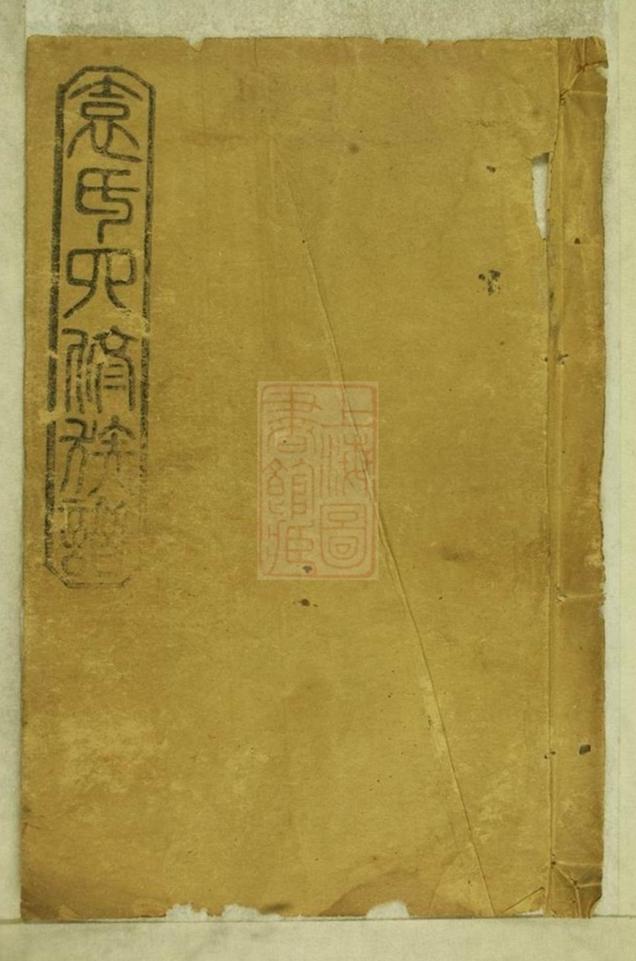 袁氏六修族譜
上海圖
書館藏